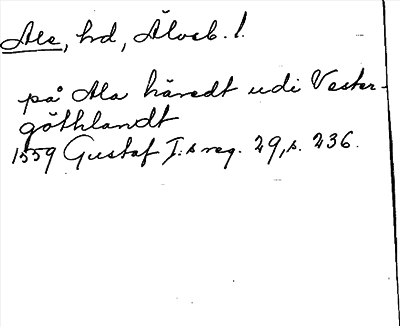 Ale, hd, Älvsb. l.
på Ala häredt udi Vester-
göthlandt
1559 Gustaf I.s reg. 29, s. 236.